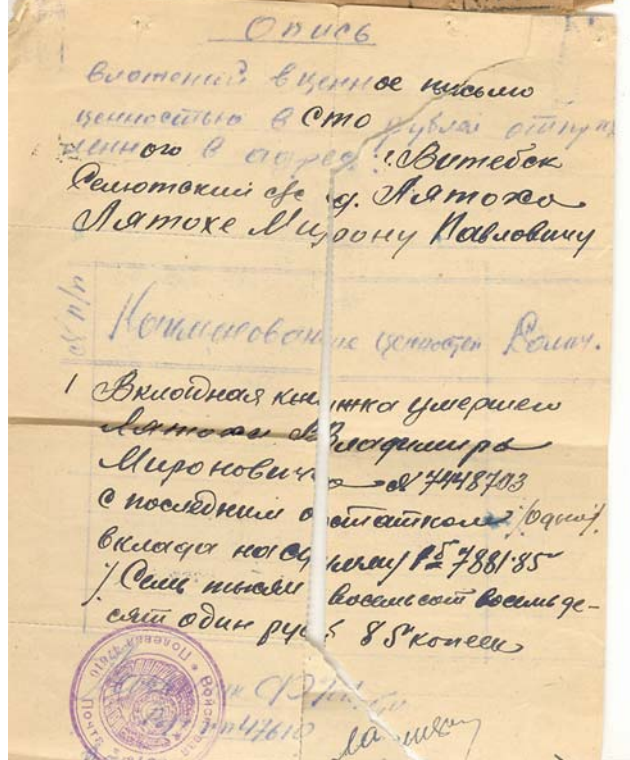 Опись
вложений в ценное письмо
ценностью в сто рублей отпра
ценного в адрес: Витебск
д. Лятохо
Лятохе Мирону Павловичу
№ п/п Наименование ценностей Колич.
1 Вкладная книжка умершего
Лятохи Владимира
Мироновича № 7448703
с последним остатком /одна/
вклада на сумму 7881-85
/Семь тысяч восемьсот восемьде-
сят один руб 85 копеек
47610